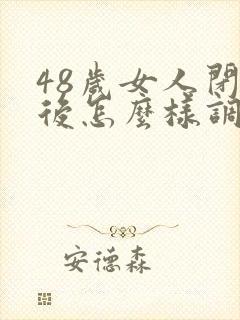 48歲女人閉
後怎麼樣調
安德森